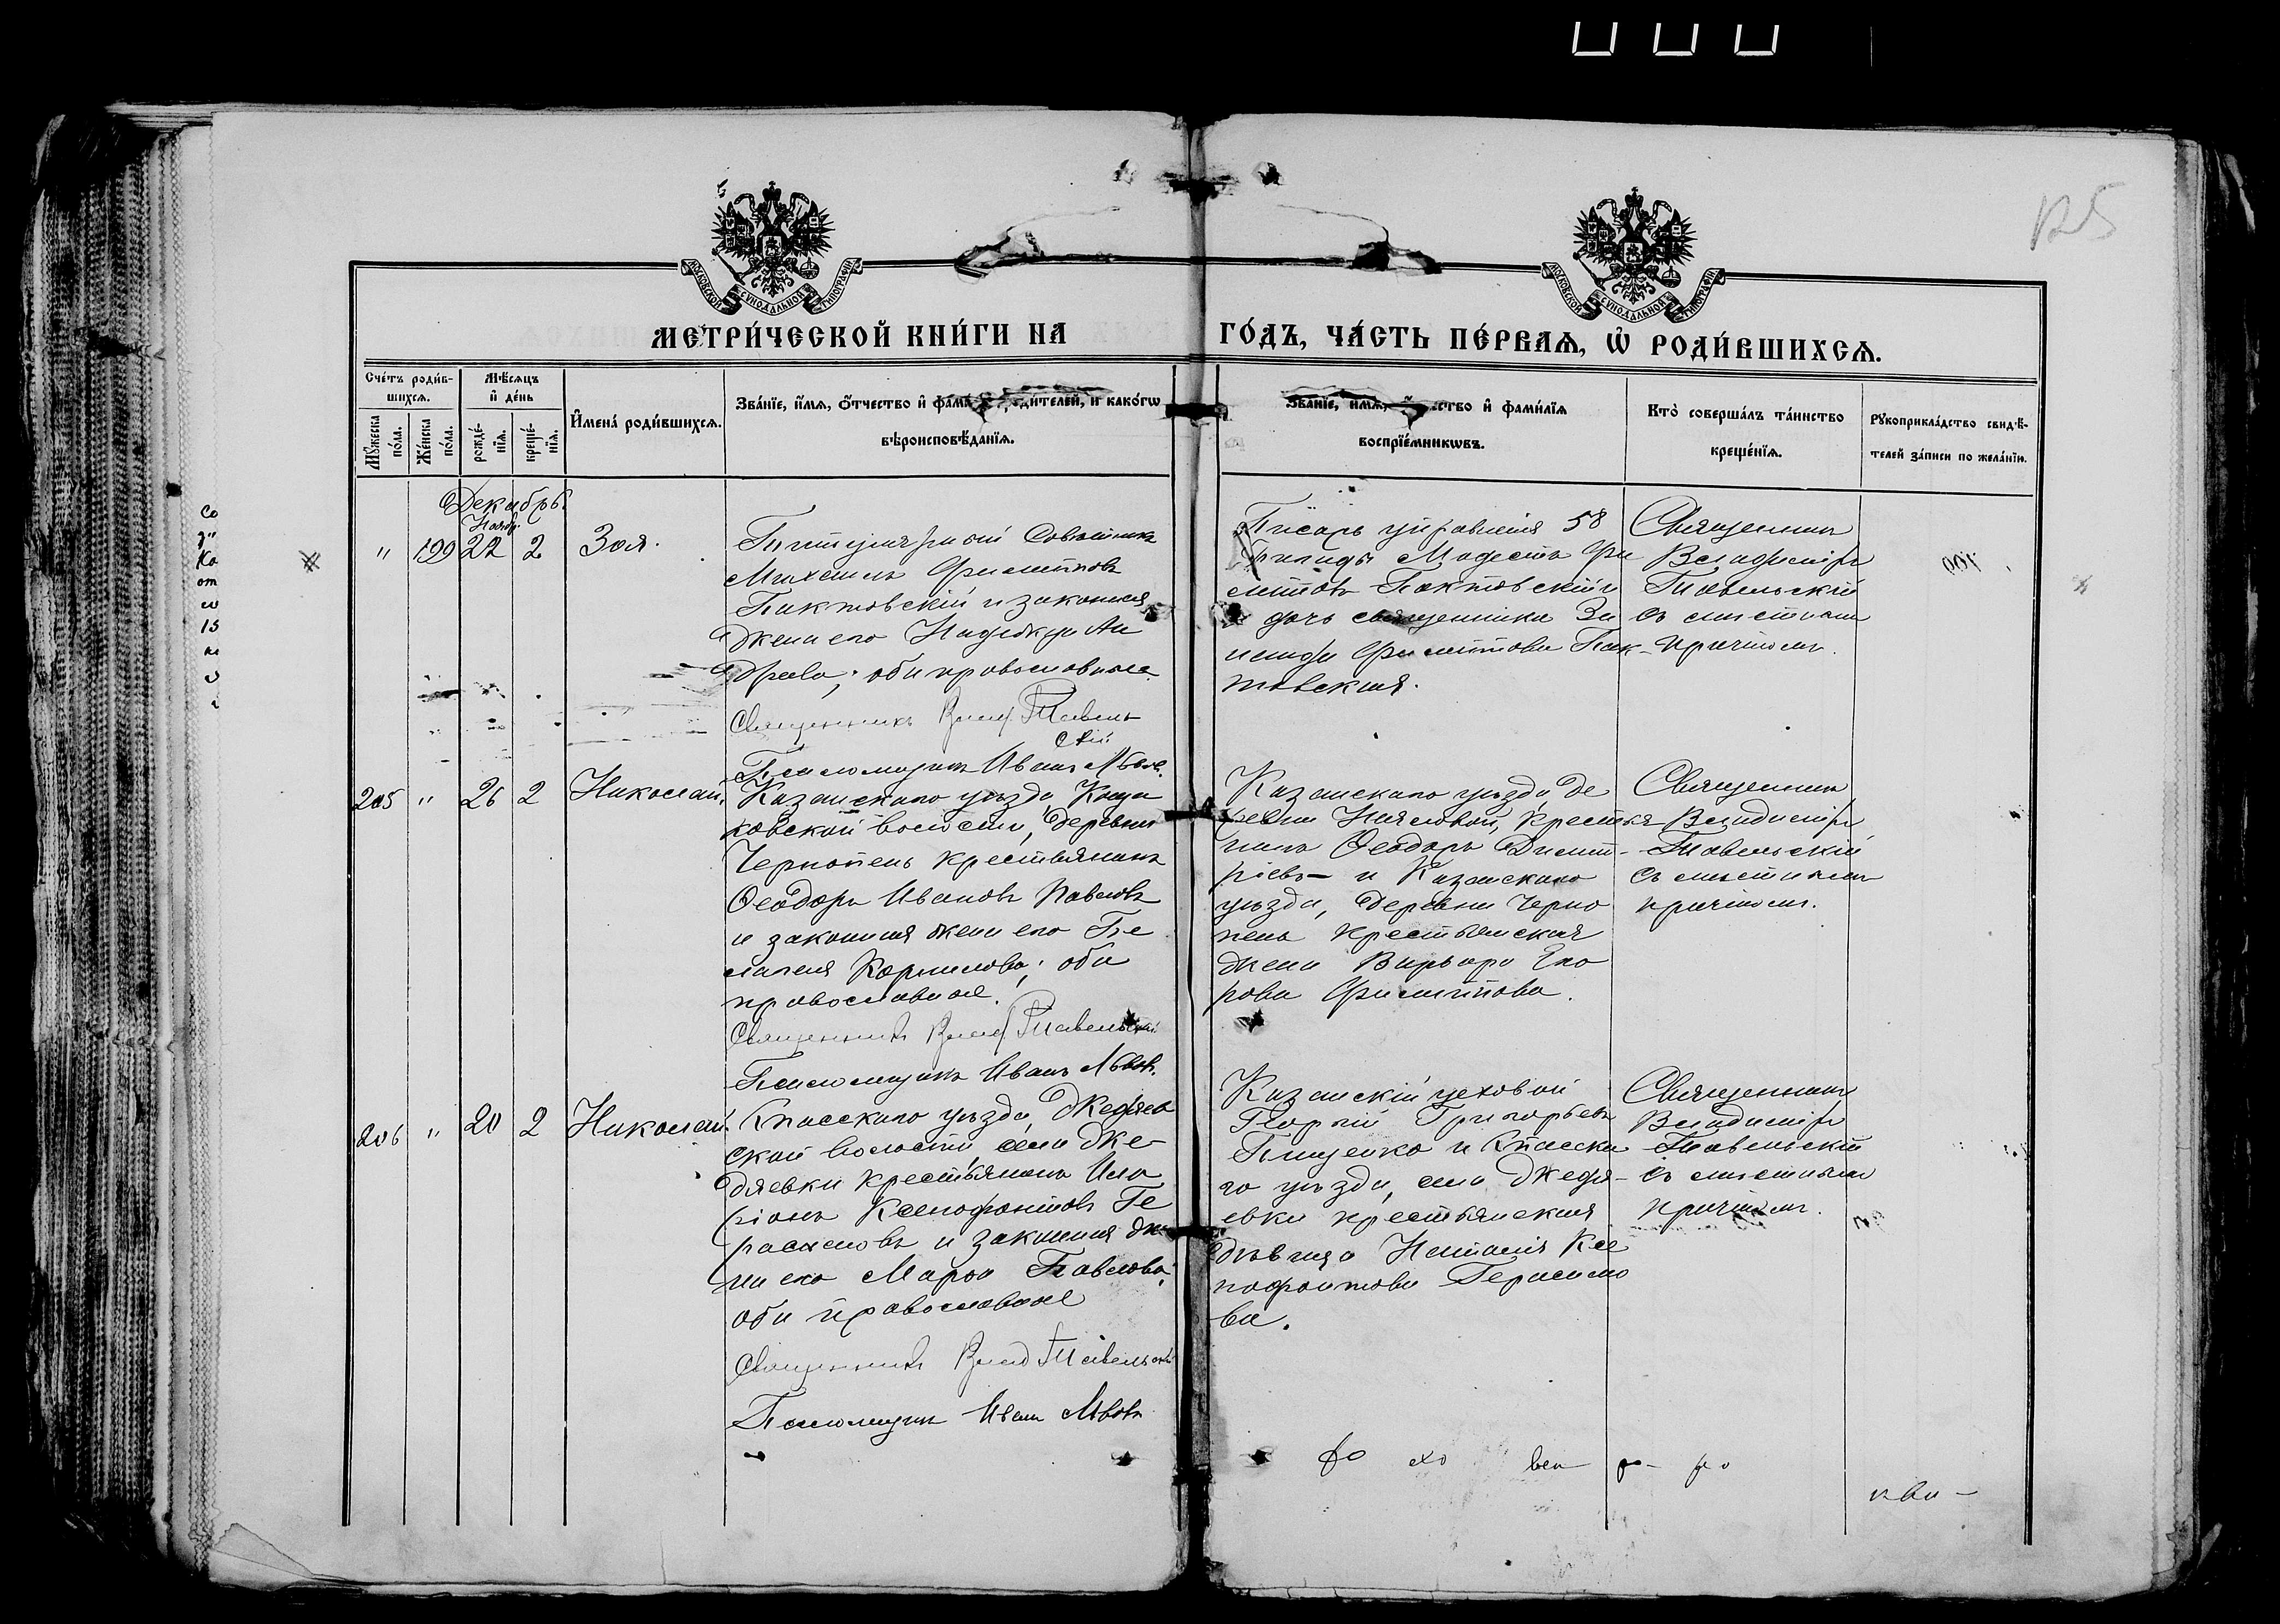 125
МОСКОВСКОЙ СѴНОДАЛЬНОЙ ТИПОГРАФІИ
МОСКОВСКОЙ СѴНОДАЛЬНОЙ ТИПОГРАФІИ
МЕТРИ́ЧЕСКОЙ КНИ́ГИ НА ГО́ДЪ, ЧА́СТЬ ПЕ́РВАѦ, Ѡ҆ РОДИ́ВШИХСѦ.
Сче́тъ роди́в-
шихсѧ.
Мꙋ́жеска по́ла.
Же́нска по́ла.
Мѣ́сѧцъ
и҆ де́нь
рожде́-
нїѧ.
креще́-
нїѧ.
И҆мена̀ роди́вшихсѧ.
Зва́нїе, и҆́мѧ, ѻ҆́тчество и҆ родителей, и҆ како́гѡ
вѣроисповѣ́данїѧ.
Зва́нїе, и҆́мѧ, и҆ фами́лїѧ
воспрїе́мникѡвъ.
Кто̀ соверша́лъ та́инство
креще́нїѧ.
Рꙋкоприкла́дство свидѣ́-
телей за́писи по жела́нїю.
Декабрь.
Нояб.
" 199 22 2 Зоя.
Титулярный Совѣтникъ
Михаилъ Филипповъ
Пактовскій и законная
жена его Надежда Ан
дреева; оба православные
Священникъ Влад. Тавель
скій
Псаломщикъ Иванъ Львовъ.
Писарь управленія 58
бригады Модестъ Фи
липповъ Пактовскій и
дочь священника Зи
наида Филиппова Пак-
товская.
Священникъ
Владиміръ
Тавельскій
съ мѣстнымъ
причтомъ.
205 " 26 2 Николай.
Казанскаго уѣзда Коща
ковской волости, деревни
Чернопень крестьянинъ
Ѳеодоръ Ивановъ Павловъ
и законная жена его Пе
лагея Корнилова; оба
православные.
Священникъ Влад. Тавельскій
Псаломщикъ Иванъ Львовъ.
Казанскаго уѣзда, де
ревни крестья
нинъ Ѳеодоръ Димит-
ріевъ и Казанскаго
уѣзда, деревни Черно
пень крестьянская
жена Варвара Его
рова Филиппова.
Священникъ
Владиміръ
Тавельскій
съ мѣстнымъ
причтомъ.
206 " 20 2 Николай.
Спасскаго уѣзда, Жедяев
ской волости, села Же-
дяевки крестьянинъ Ила
ріонъ Ксенофонтовъ Ге
расимовъ и законная же
на его Марѳа Павлова;
оба православные
Священникъ Влад Тавельскій
Псаломщикъ Иванъ Львовъ
Казанскій цеховой
Георгій Григорьевъ
Пищенко и Спасска
го уѣзда, села Жедя-
евки крестьянская
дѣвица Наталія Ксе
нофонтова Герасимо
ва.
Священникъ
Владиміръ
Тавельскій
съ мѣстнымъ
причтомъ.